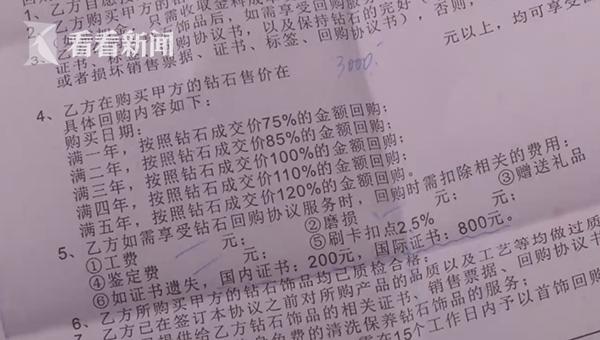 看看新闻
1、乙方自愿按
2、乙方购买甲方的
只需收取金料成本
饰品后，如需享受回购
证书、标签、回购协议书，以及保持钻石的完好
或者损坏销售票据、证书、标签、回购协议书），否则，
3000
元以上，均可享受
4、乙方在购买甲方的钻石售价在
具体回购内容如下：
购买日期：
满一年，按照钻石成交价75%的金额回购；
满二年，按照钻石成交价85%的金额回购；
满三年，按照钻石成交价100%的金额回购；
满四年，按照钻石成交价110%的金额回购；
满五年，按照钻石成交价120%的金额回购。
5、乙方如需享受钻石回购协议服务时，回购时需扣除相关的费用：
①工费 元； ②磨损 元； ③赠送礼品
④鉴定费 元； ⑤刷卡扣点2.5%
⑥如证书遗失，国内证书：200元，国际证书：800元。
6、乙方所购买甲方的钻石饰品均已质检合格；
乙方已在签订本协议之前对所购产品的品质以及工艺等均做过质
提供给乙方钻石饰品的相关证书、销售票据、回购协议书
免费的清洗保养钻石饰品的服务；
在15个工作日内予以首饰回购